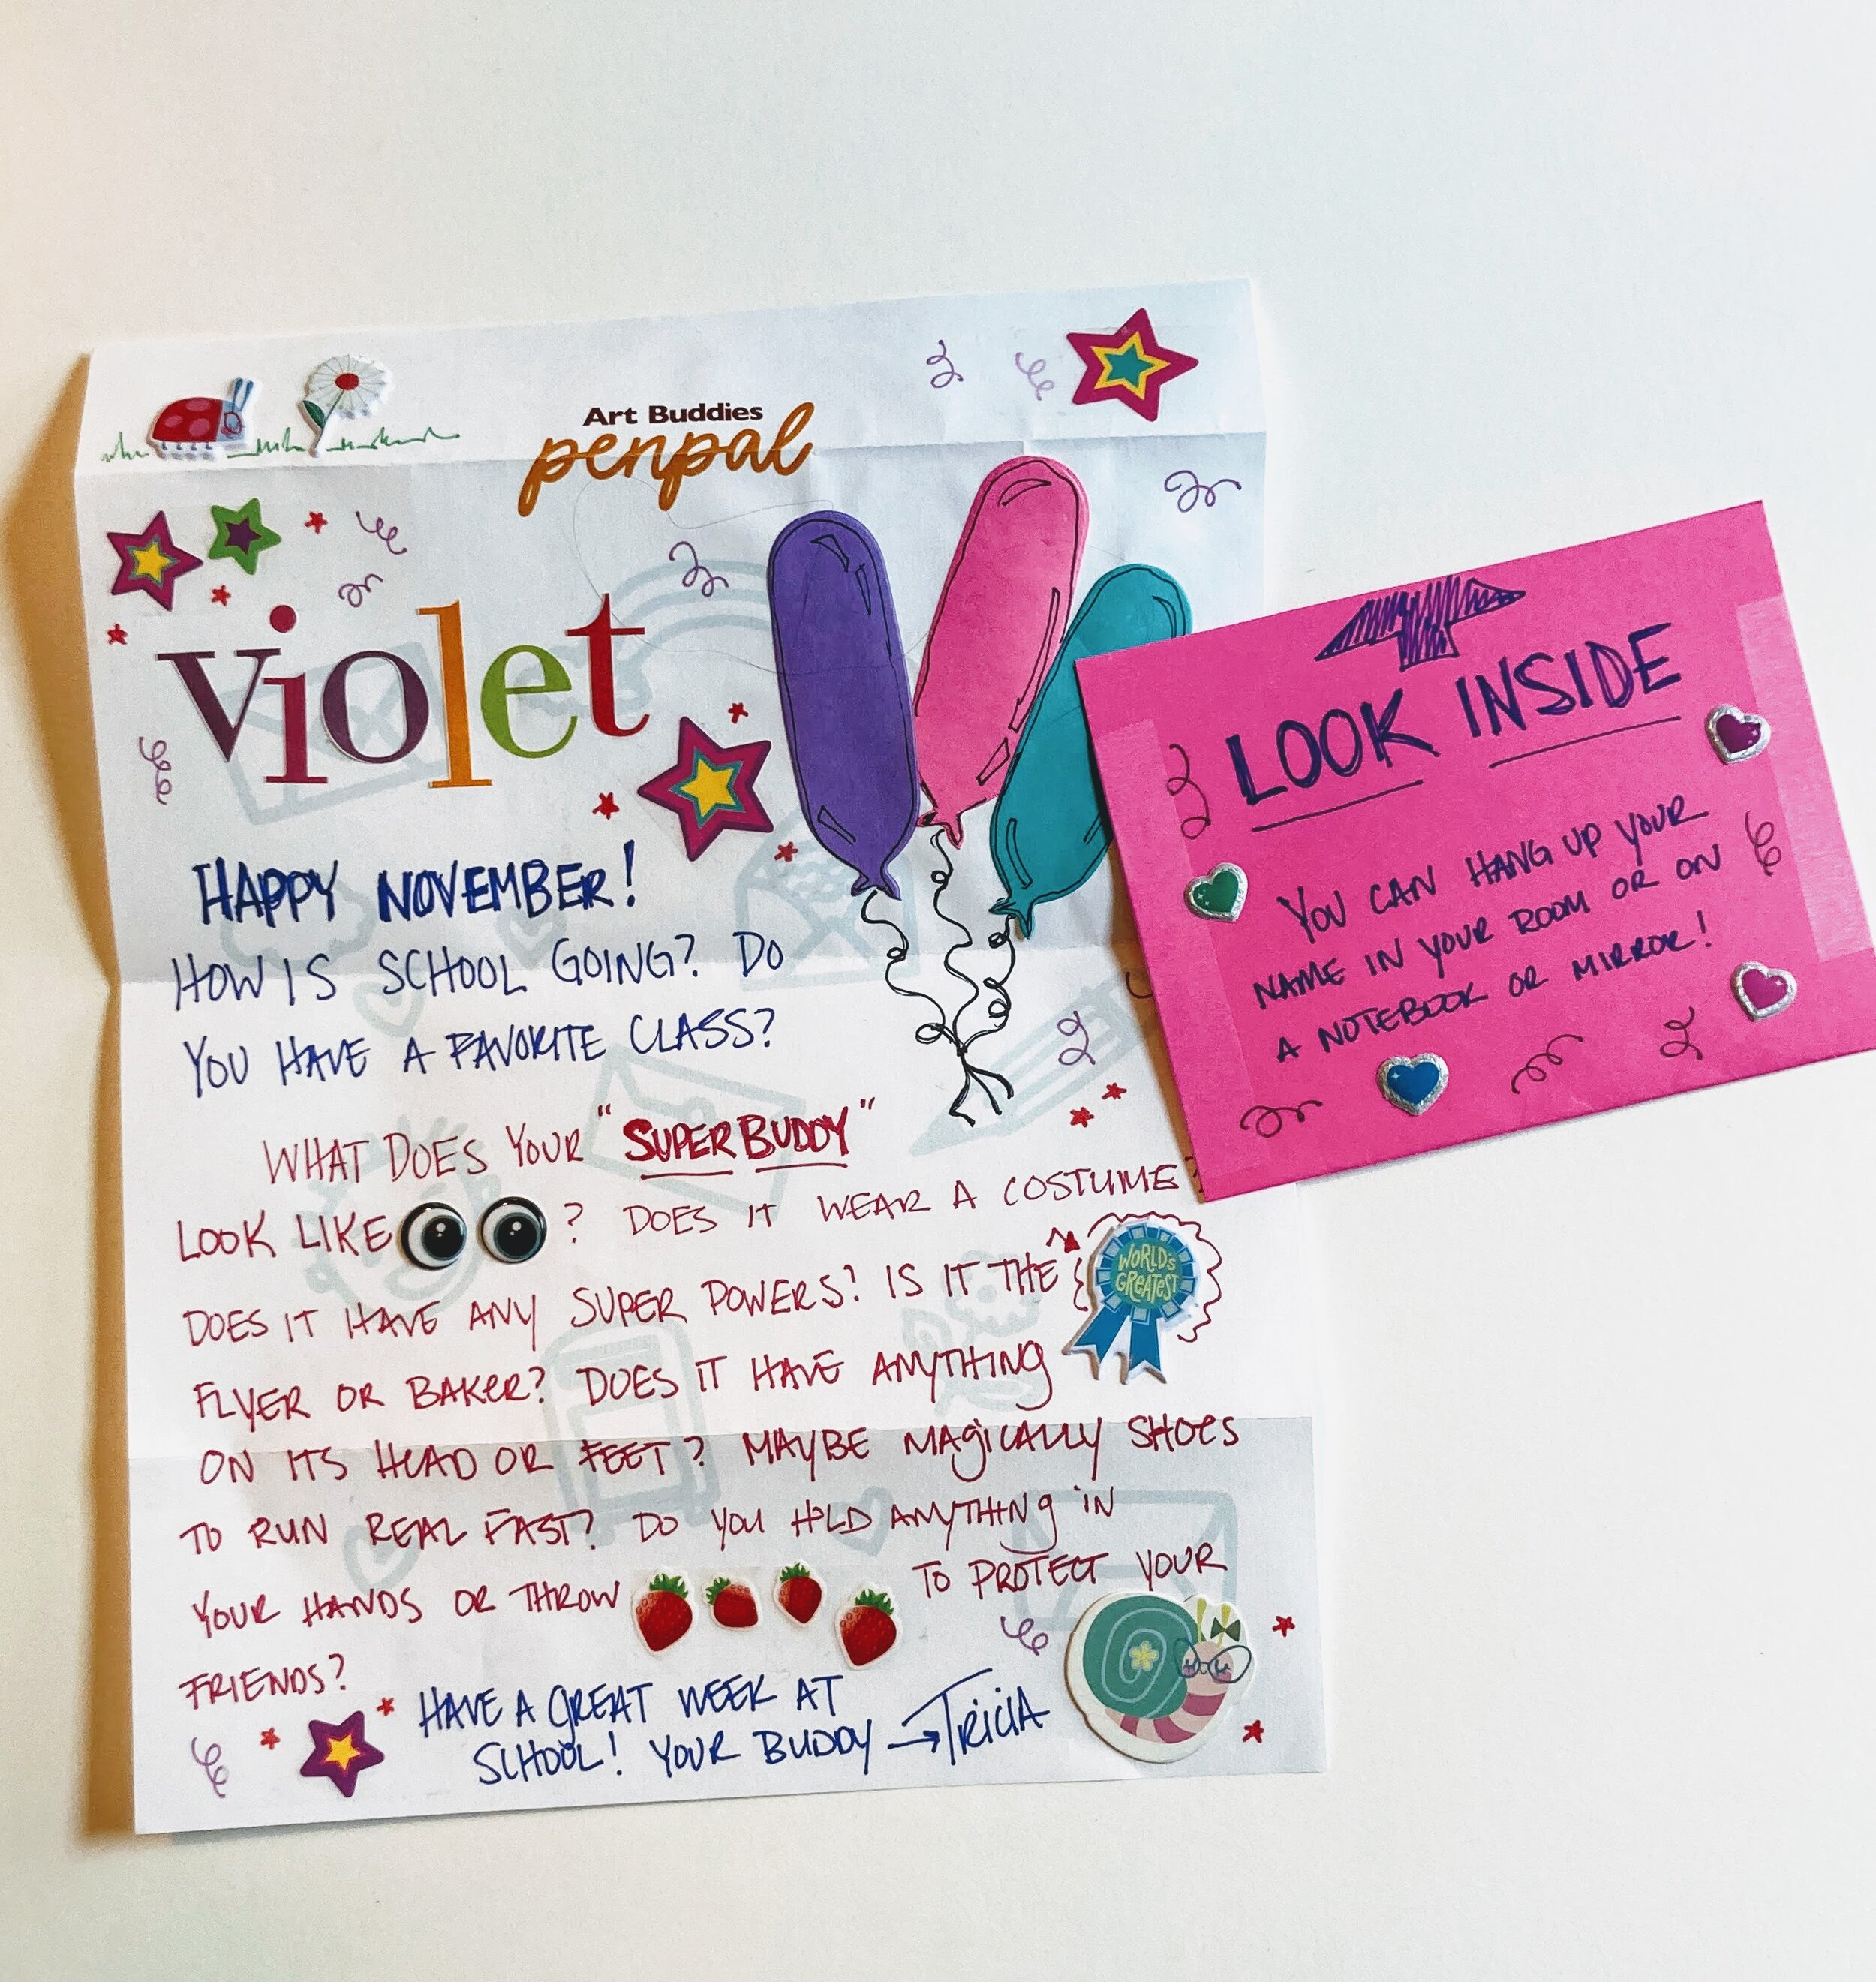 Art Buddies
penpal
violet
HAPPY NOVEMBER!
HOW IS SCHOOL GOING? DO
YOU HAVE A FAVORITE CLASS?
WHAT DOES YOUR "SUPER BUDDY"
LOOK LIKE ? DOES IT WEAR A COSTUME
DOES IT HAVE ANY SUPER POWERS? IS IT THE
WORLD'S
GREATEST
FLYER OR BAKER? DOES IT HAVE ANYTHING
ON ITS HEAD OR FEET? MAYBE MAGICALLY SHOES
TO RUN REAL FAST? DO YOU HOLD ANYTHING IN
YOUR HANDS OR THROW TO PROTECT YOUR
FRIENDS?
HAVE A GREAT WEEK AT
SCHOOL! YOUR BUDDY → TRICIA
LOOK INSIDE
YOU CAN HANG UP YOUR
NAME IN YOUR ROOM OR ON
A NOTEBOOK OR MIRROR!